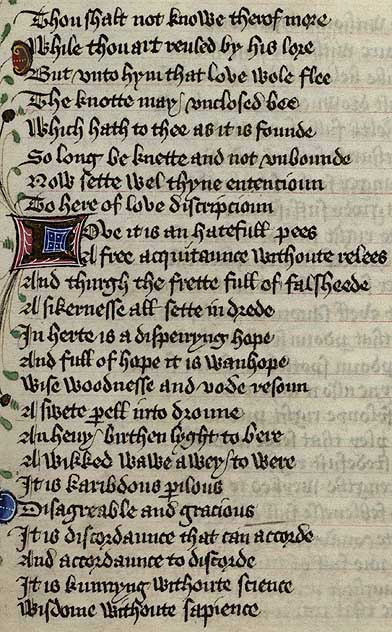 Thou shalt not knowe therof more
While thou art reuled by his lore
But vnto hym that love wole flee
The knotte may / vnclosed bee
Which hath to thee as it is founde
So long be knette and not vnbounde
Now sette wel thyne entencioun
To here of love discripcioun
Love it is an hatefull pees
A free acquitaunce withoute relees
And thurgh the frette full of falsheede
A sikernesse all sette in drede
In herte is a dispeiryng hope
And full of hope it is wanhope
Wise woodnesse and vode resoun
A swete ꝑell into droune
An heuy / birthen lyght to bere
A wikked wawe awey / to were
It is karibdous ꝑilous
Disagreable and gracious
It is discordaunce that can accorde
And accordaunce to discorde
It is kunnyng withoute science
Wisdome withoute sapience